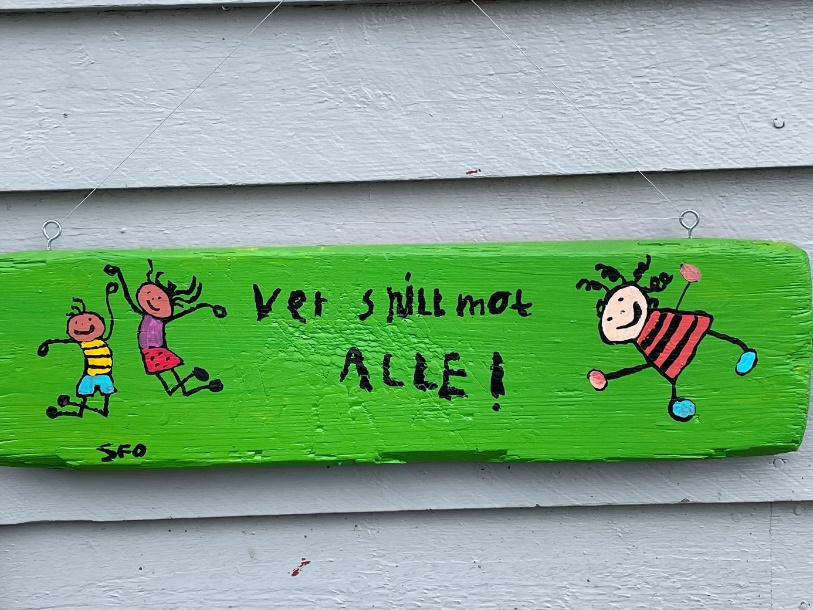 Ver snill mot
ALLE!
SFO